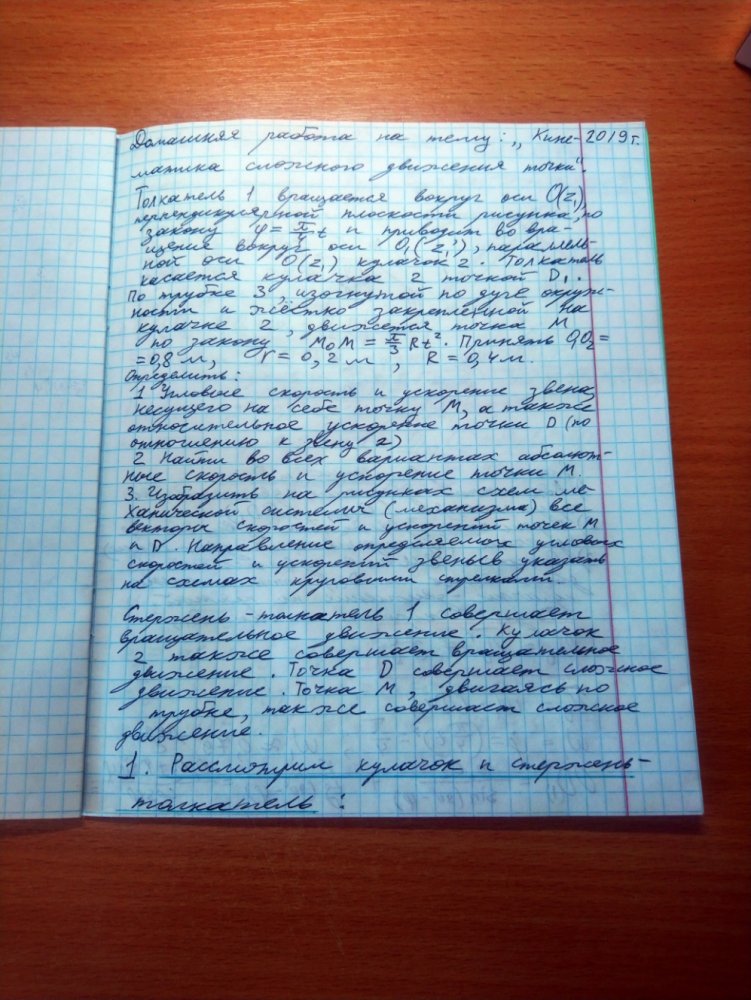 Домашняя работа на тему: „Кине- 2019 г.
матика сложного движения точки".
Толкатель 1 вращается вокруг оси O(z₁)
перпендикулярной плоскости рисунка, по
закону φ = π/4 t и приводит во вра-
щение вокруг оси O₁(z'), параллель-
ной оси O(z₁) кулачок 2. Толкатель
касается кулачка 2 точкой D₁.
По трубке 3, изогнутой по дуге окруж-
ности и жёстко закреплённой на
кулачке 2, движется точка M
по закону M₀M = π/3 Rt². Принять O₁O₂ =
= 0,8 м, r = 0,2 м, R = 0,4 м.
Определить:
1 Угловые скорость и ускорение звена,
несущего на себе точку M, а также
относительное ускорение точки D (по
отношению к звену 2)
2 Найти во всех вариантах абсолют-
ные скорость и ускорение точки M.
3. Изобразить на рисунках схем ме-
ханической системы (механизма) все
векторы скоростей и ускорений точек M
и D. Направление определяемых угловых
скоростей и ускорений звеньев указать
на схемах круговыми стрелками.
Стержень-толкатель 1 совершает
вращательное движение. Кулачок
2 также совершает вращательное
движение. Точка D совершает сложное
движение. Точка M, двигаясь по
трубке, также совершает сложное
движение.
1. Рассмотрим кулачок и стержень-
толкатель: